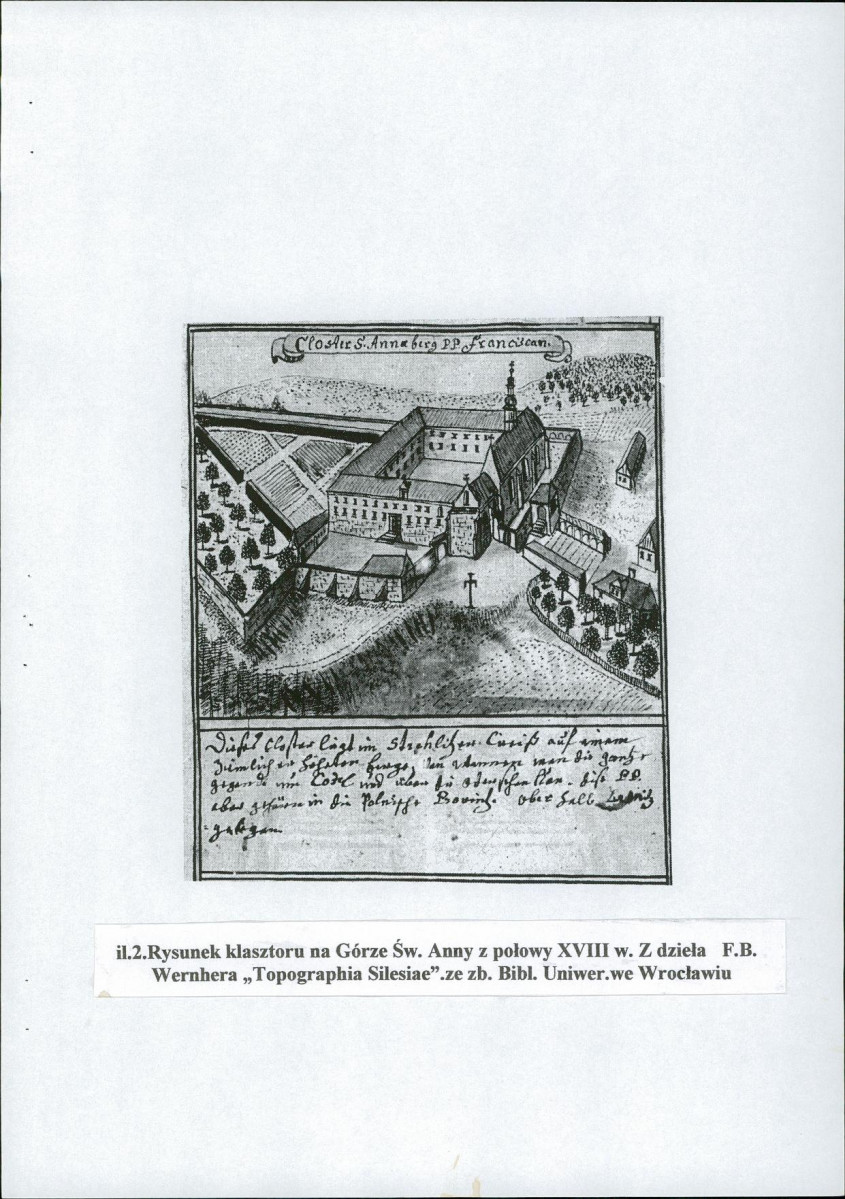 Closter S. Annaberg P.P. Franciscan.
Dieses Closter ligt im Strehlitzer Creiß auf einem
Zimlich er Höheten Berge, von wannen man die gantze
gegend um Cosel und über die Oder sehen kan. diese P.P.
aber gehören in die Polnische Provintz. Ober halb
gelegen.
il.2.Rysunek klasztoru na Górze Św. Anny z połowy XVIII w. Z dzieła F.B.
Wernhera „Topographia Silesiae”.ze zb. Bibl. Uniwer.we Wrocławiu